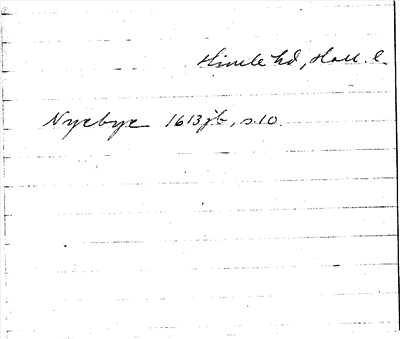 Himle hd, Hall. l.
Nyebye 1613 jb, s.10.